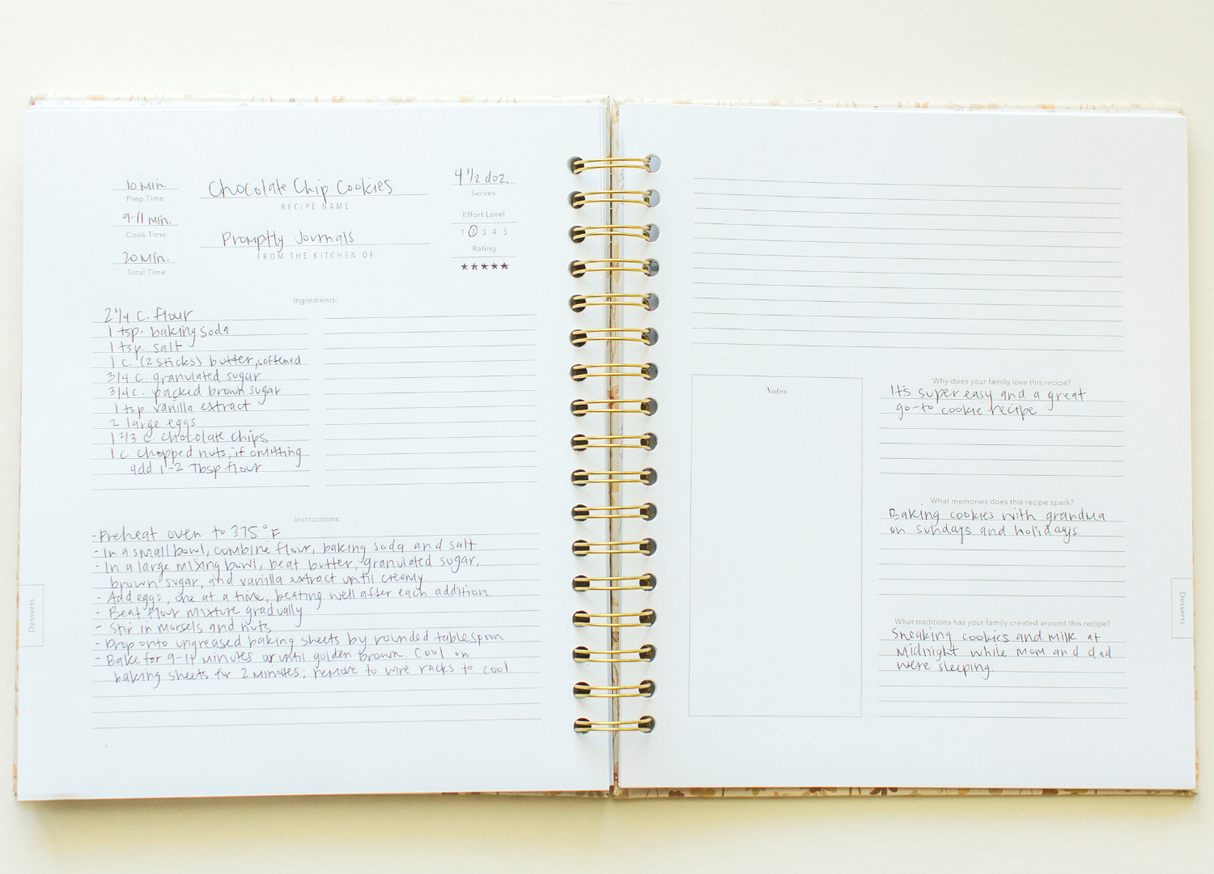 10 min.
Prep Time
9-11 min.
Cook Time
20 min.
Total Time
Chocolate Chip Cookies
RECIPE NAME
Promptly Journals
FROM THE KITCHEN OF
4 1/2 doz.
Serves
Effort Level
1 2 3 4 5
Rating
★★★★★
Ingredients:
2 1/4 c. flour
1 tsp. baking soda
1 tsp. salt
1 c. (2 sticks) butter, softened
3/4 c. granulated sugar
3/4 c. packed brown sugar
1 tsp. vanilla extract
2 large eggs
1 2/3 c. chocolate chips
1 c chopped nuts, if omitting
add 1-2 Tbsp flour
Instructions:
-Preheat oven to 375°F
- In a small bowl, combine flour, baking soda and salt
- In a large mixing bowl, beat butter, granulated sugar,
brown sugar, and vanilla extract until creamy
- Add eggs, one at a time, beating well after each addition
- Beat flour mixture gradually
- Stir in morsels and nuts
- Drop onto ungreased baking sheets by rounded tablespoon
- Bake for 9-11 minutes or until golden brown. Cool on
baking sheets for 2 minutes; remove to wire racks to cool
Desserts
Notes
Why does your family love this recipe?
It's super easy and a great
go-to cookie recipe
What memories does this recipe spark?
Baking cookies with grandma
on sundays and holidays
What traditions has your family created around this recipe?
Sneaking cookies and milk at
Midnight while mom and dad
were sleeping.
Desserts